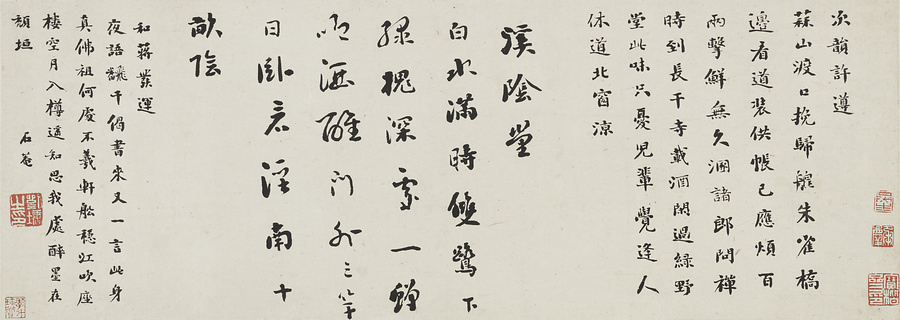 次韻許遵
蒜山渡口挽歸艎朱雀橋
邊看道裝供帳已應煩百
兩擊鮮無久溷諸郎問禪
時到長干寺載酒閑過綠野
堂此味只憂兒輩覺逢人
休道北窗涼
溪陰堂
白水滿時雙鷺下
綠槐深處一蟬
吟酒醒門外三竿
日臥看溪南十
畝陰
和蔣發運
夜語翻千偈書來又一言此身
真佛祖何處不羲軒船穩江吹座
樓空月入樽遙知思我處醉墨在
頹垣
石菴
劉墉之印